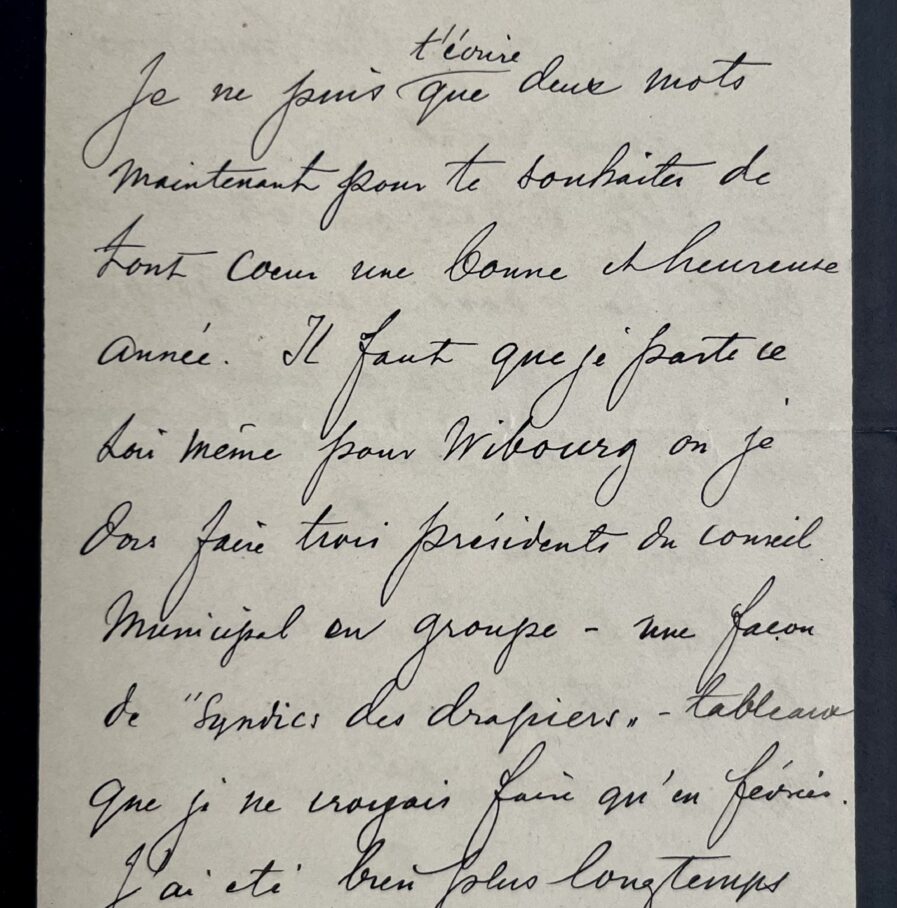 t'écrire
Je ne puis que deux mots
maintenant pour te souhaiter de
tout coeur une bonne et heureuse
année. Il faut que je parte ce
soir même pour Wibourg ou je
dois faire trois présidents du conseil
Municipal en groupe - une façon
de "Syndics des drapiers" - tableaux
que je ne croyais faire qu'en février.
J'ai eté bien plus longtemps